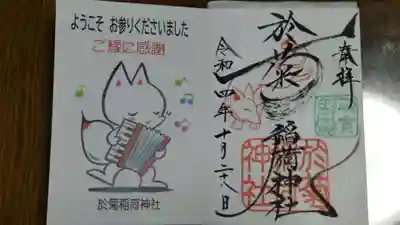 ようこそ お参りくださいました
ご縁に感謝
於菊稲荷神社
奉拝
於菊稲荷神社
令和四年十月二十八日